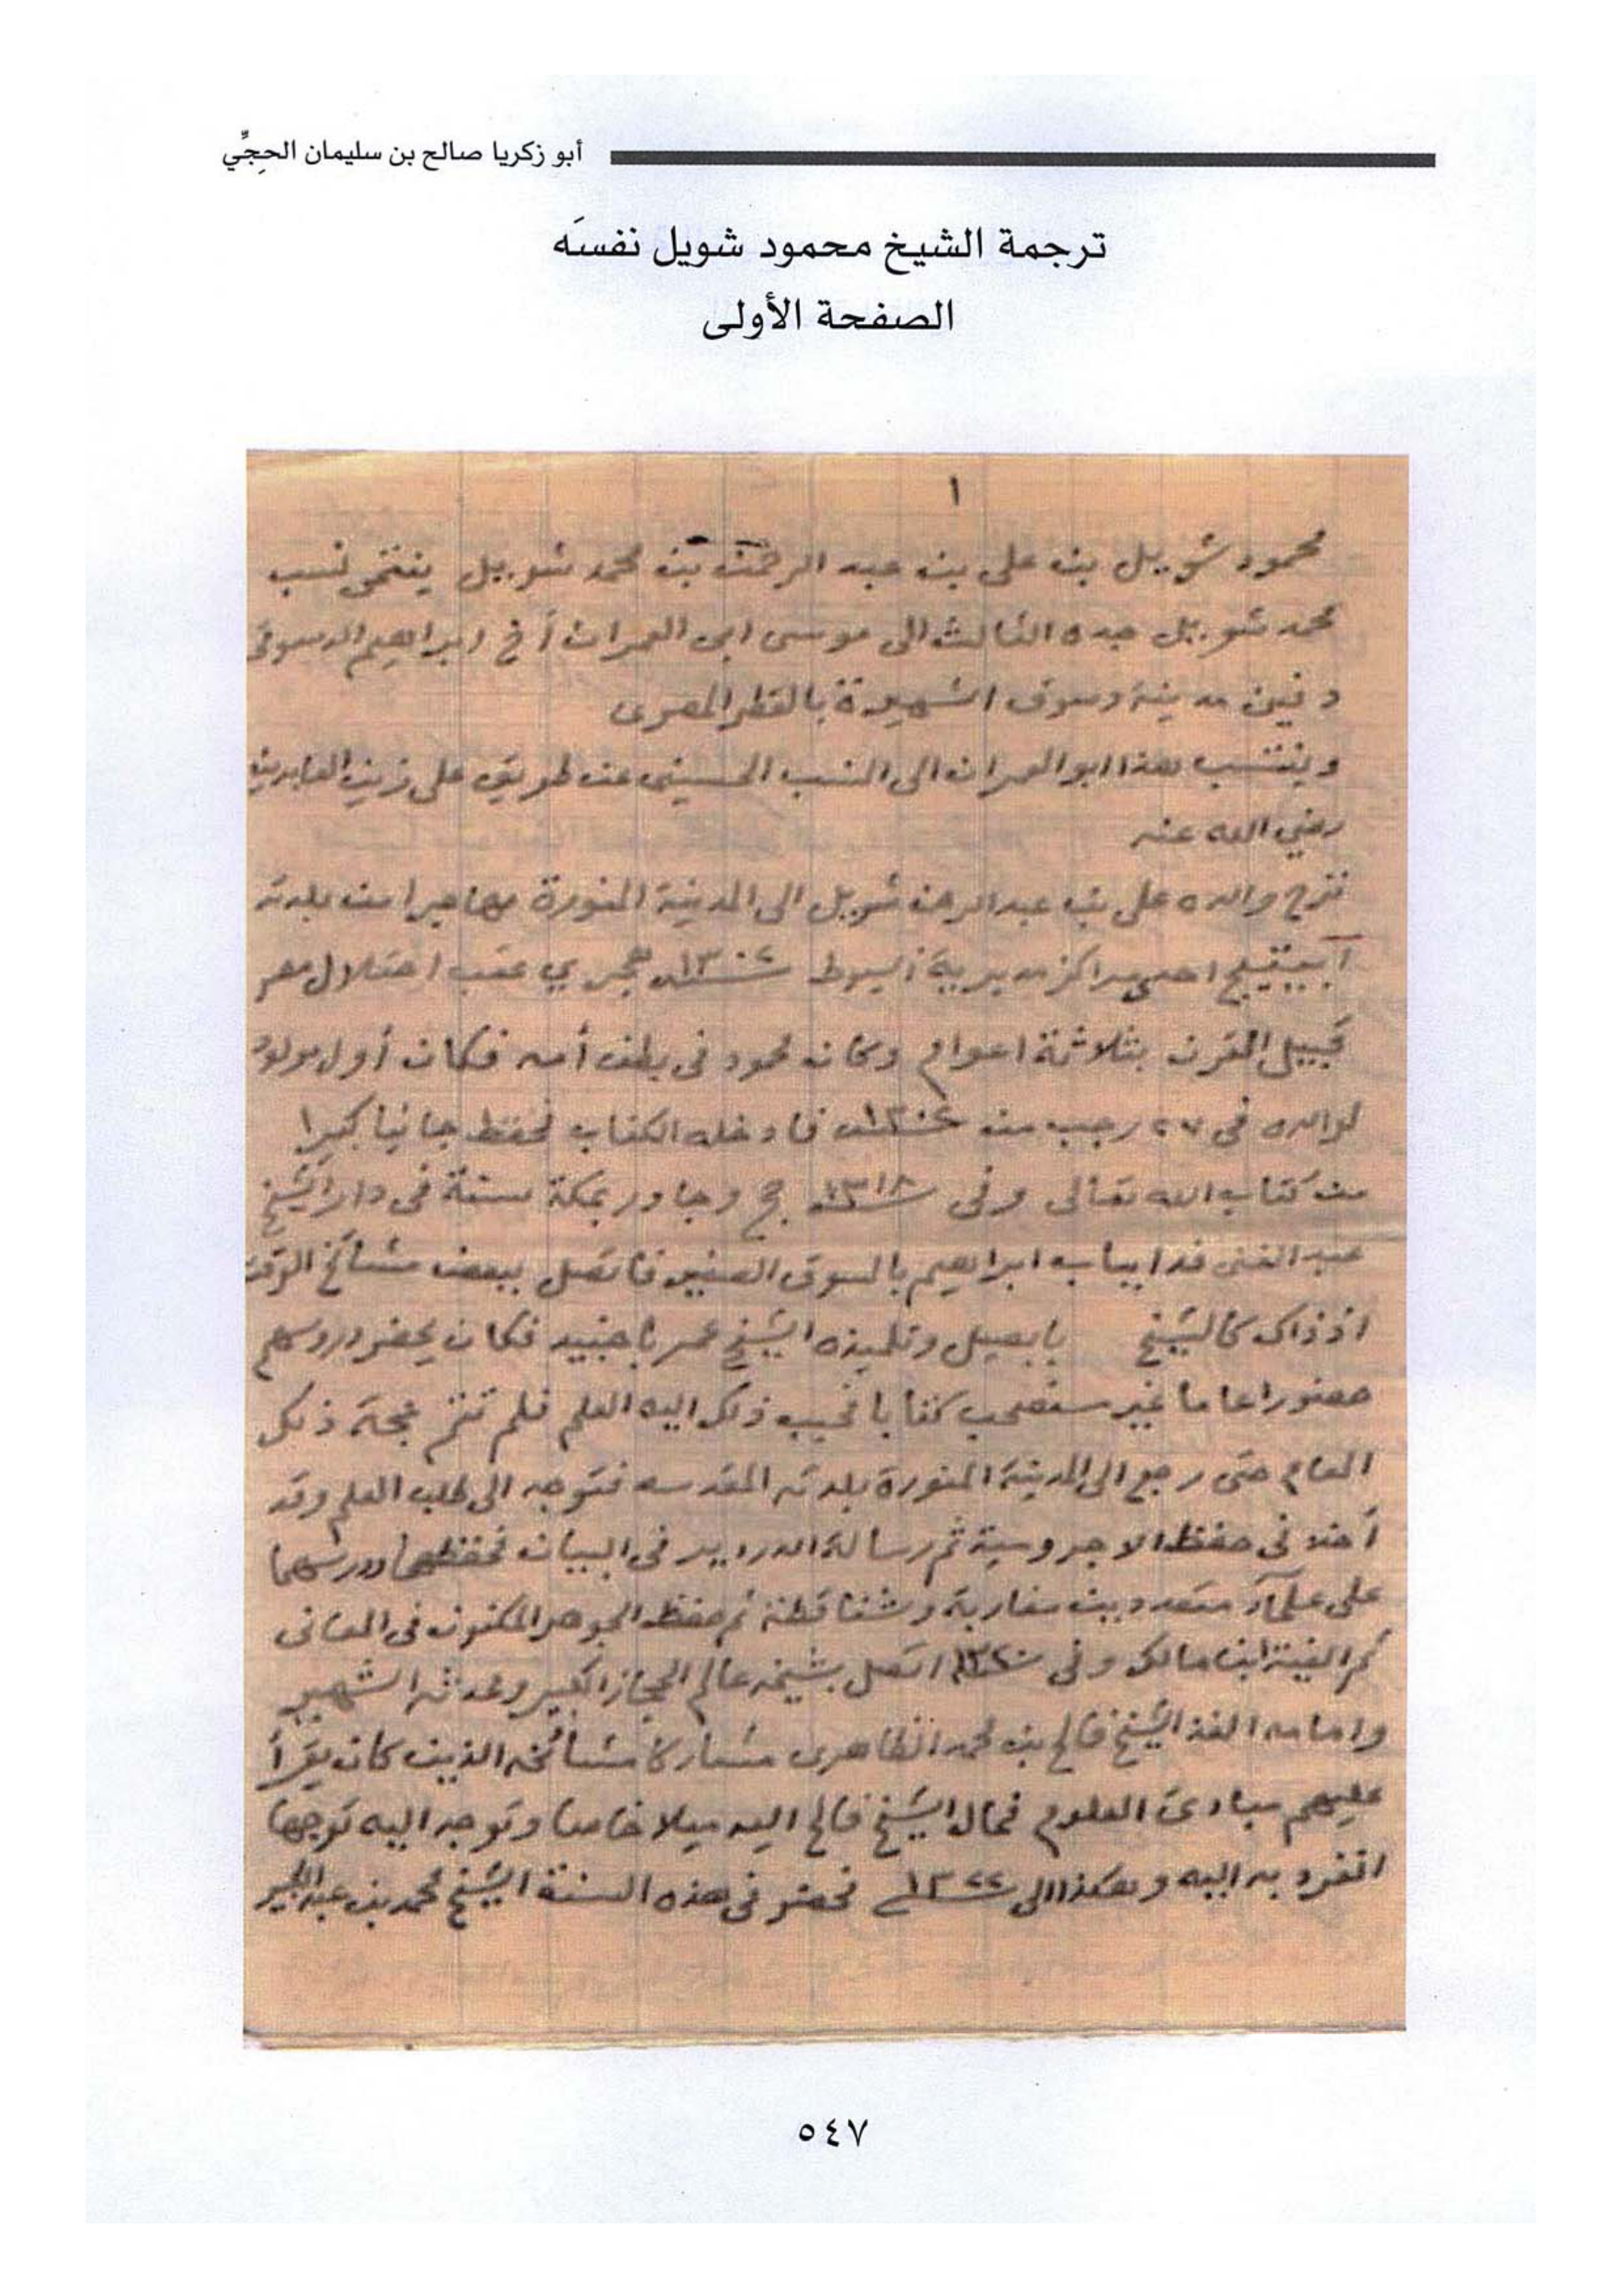 أبو زكريا صالح بن سليمان الحِجِّي
ترجمة الشيخ محمود شويل نفسَه
الصفحة الأولى
١
محمود شويل بن علي بن عبد الرحمن بن محمد شويل ينتمى نسب
محمد شويل جده الثالث الى موسى ابى العمران أخ ابراهيم الدسوقى
دفين مدينة دسوق الشهيرة بالقطر المصرى
وينتسب هذا ابو العمران الى النسب الحسينى عن طريق على زين العابدين
رضي الله عنه
نزح والده على بن عبد الرحمن شويل الى المدينة المنورة مهاجرا من بلدته
احدى مراكز مديرية أسيوط هجري عقب احتلال مصر
القرن بثلاثة اعوام وكان محمود فى بطن أمه فكان أول مولود
لوالده فى ٢٧ رجب من فادخله الكتاب فحفظ جانبا كبيرا
من كتاب الله تعالى وفى ١٣١٨ حج وجاور بمكة سنة فى دار الشيخ
عبد الغنى بباب ابراهيم بالسوق الصغير فاتصل ببعض مشائخ الوقت
اذ ذاك كالشيخ بابصيل وتلميذه الشيخ عمر باجنيد فكان يحضر دروسهم
حضورا عاما غير مستصحب كتابا فحبب ذلك اليه العلم فلم تتم حجة ذلك
العام حتى رجع الى المدينة المنورة بلدته المقدسه فتوجه الى طلب العلم وقد
أخذ فى حفظ الاجروسية ثم رسالة الدردير فى البيان فحفظهما ودرسهما
على علمآء متعددين مغاربة وشناقطة ثم حفظ الجوهر المكنون فى المعانى
ثم الفية ابن مالك وفى ١٣٢٠ اتصل بشيخه عالم الحجاز الكبير ومحدثه الشهير
وامامه الفذ الشيخ فالح بن محمد الظاهرى مشاركا مشائخه الذين كان يقرأ
عليهم مبادئ العلوم فمال الشيخ فالح اليه ميلا خاصا وتوجه اليه توجها
انفرد به اليه وهكذا الى ١٣٢٢ فحضر فى هذه السنة الشيخ محمد بن عبد الكبير
٥٤٧